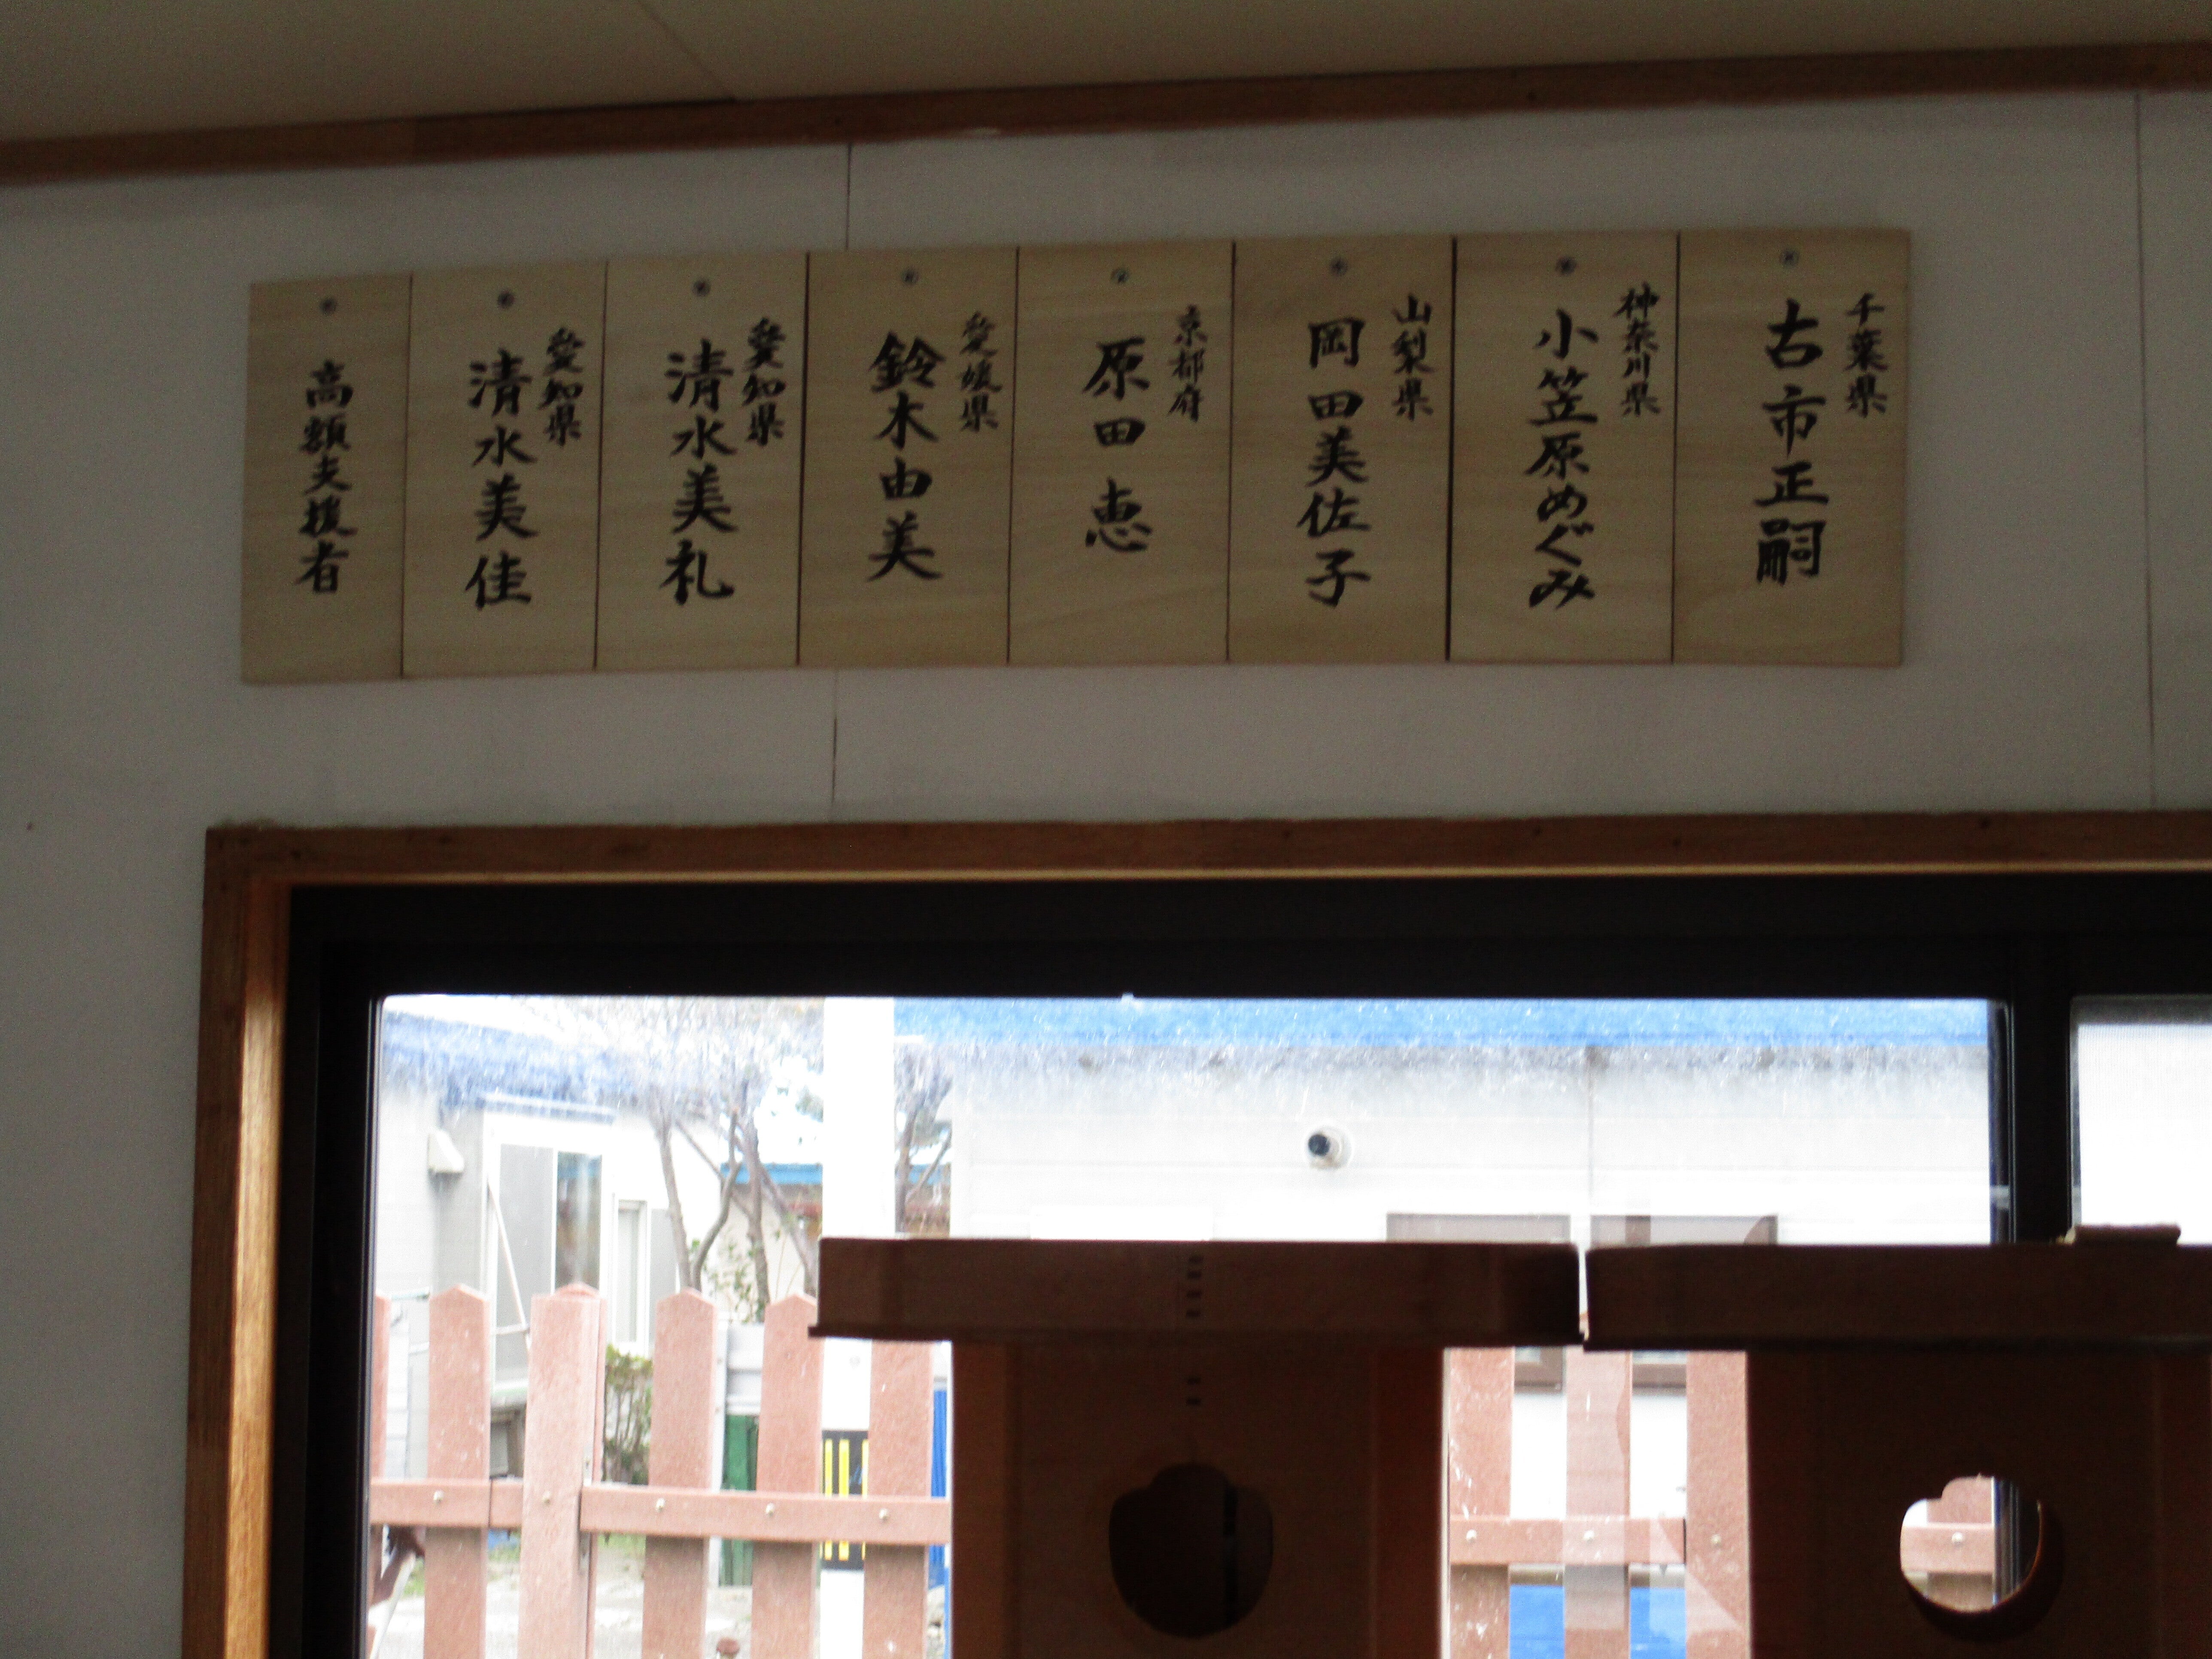 千葉県
古市正嗣
神奈川県
小笠原めぐみ
山梨県
岡田美佐子
京都府
原田恵
愛媛県
鈴木由美
愛知県
清水美礼
愛知県
清水美佳
高額支援者